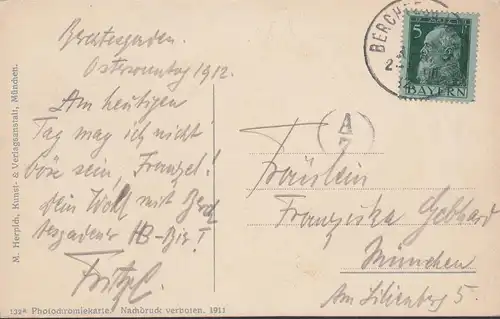 Berchtesgaden.
Ostersonntag 1912.
Am heutigen
Tag mag ich nicht
böse sein, Franzel!
Dein Wolf mit Berch
tesgadener HB-Bier!
Fritz C.
M. Herpich, Kunst- & Verlagsanstalt, München.
132a Photochromiekarte. Nachdruck verboten. 1911
BERCH
5
BAYERN
A
7
Fräulein
Franziska Gebhard
München
Am Lilienberg 5.